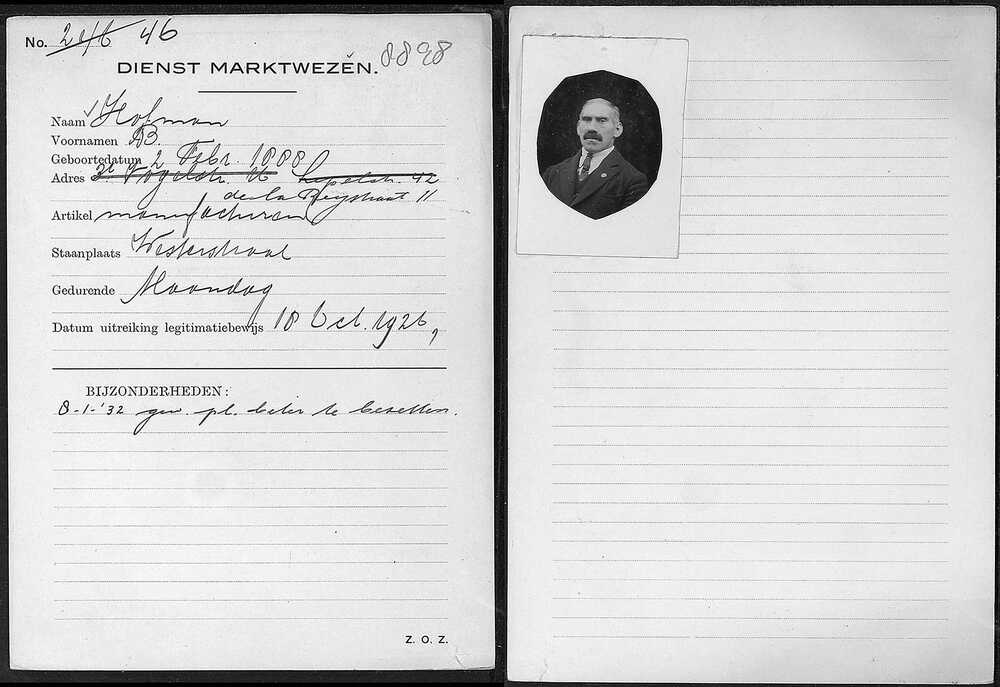 No. 2016 46
8898
DIENST MARKTWEZEN.
Naam Hofman
Voornamen B.
Geboortedatum 2 Febr. 1888
Adres 3e Vogelstr. 16 Lepelstr. 42
de la Reystraat 11
Artikel manufacturen
Staanplaats Westerstraat
Gedurende Maandag
Datum uitreiking legitimatiebewijs 18 Oct. 1926,
BIJZONDERHEDEN:
8-1-'32 gew. pl. beter te bezetten.
Z. O. Z.